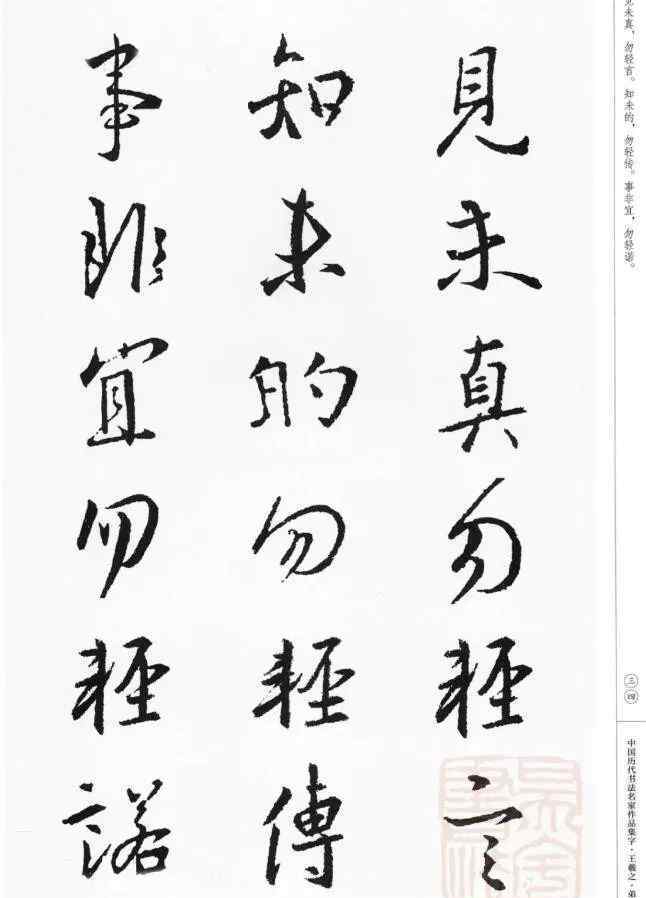 見未真勿輕言
知未的勿輕傳
事非宜勿輕諾
见未真，勿轻言。知未的，勿轻传。事非宜，勿轻诺。
三四
中国历代书法名家作品集字·王羲之·弟